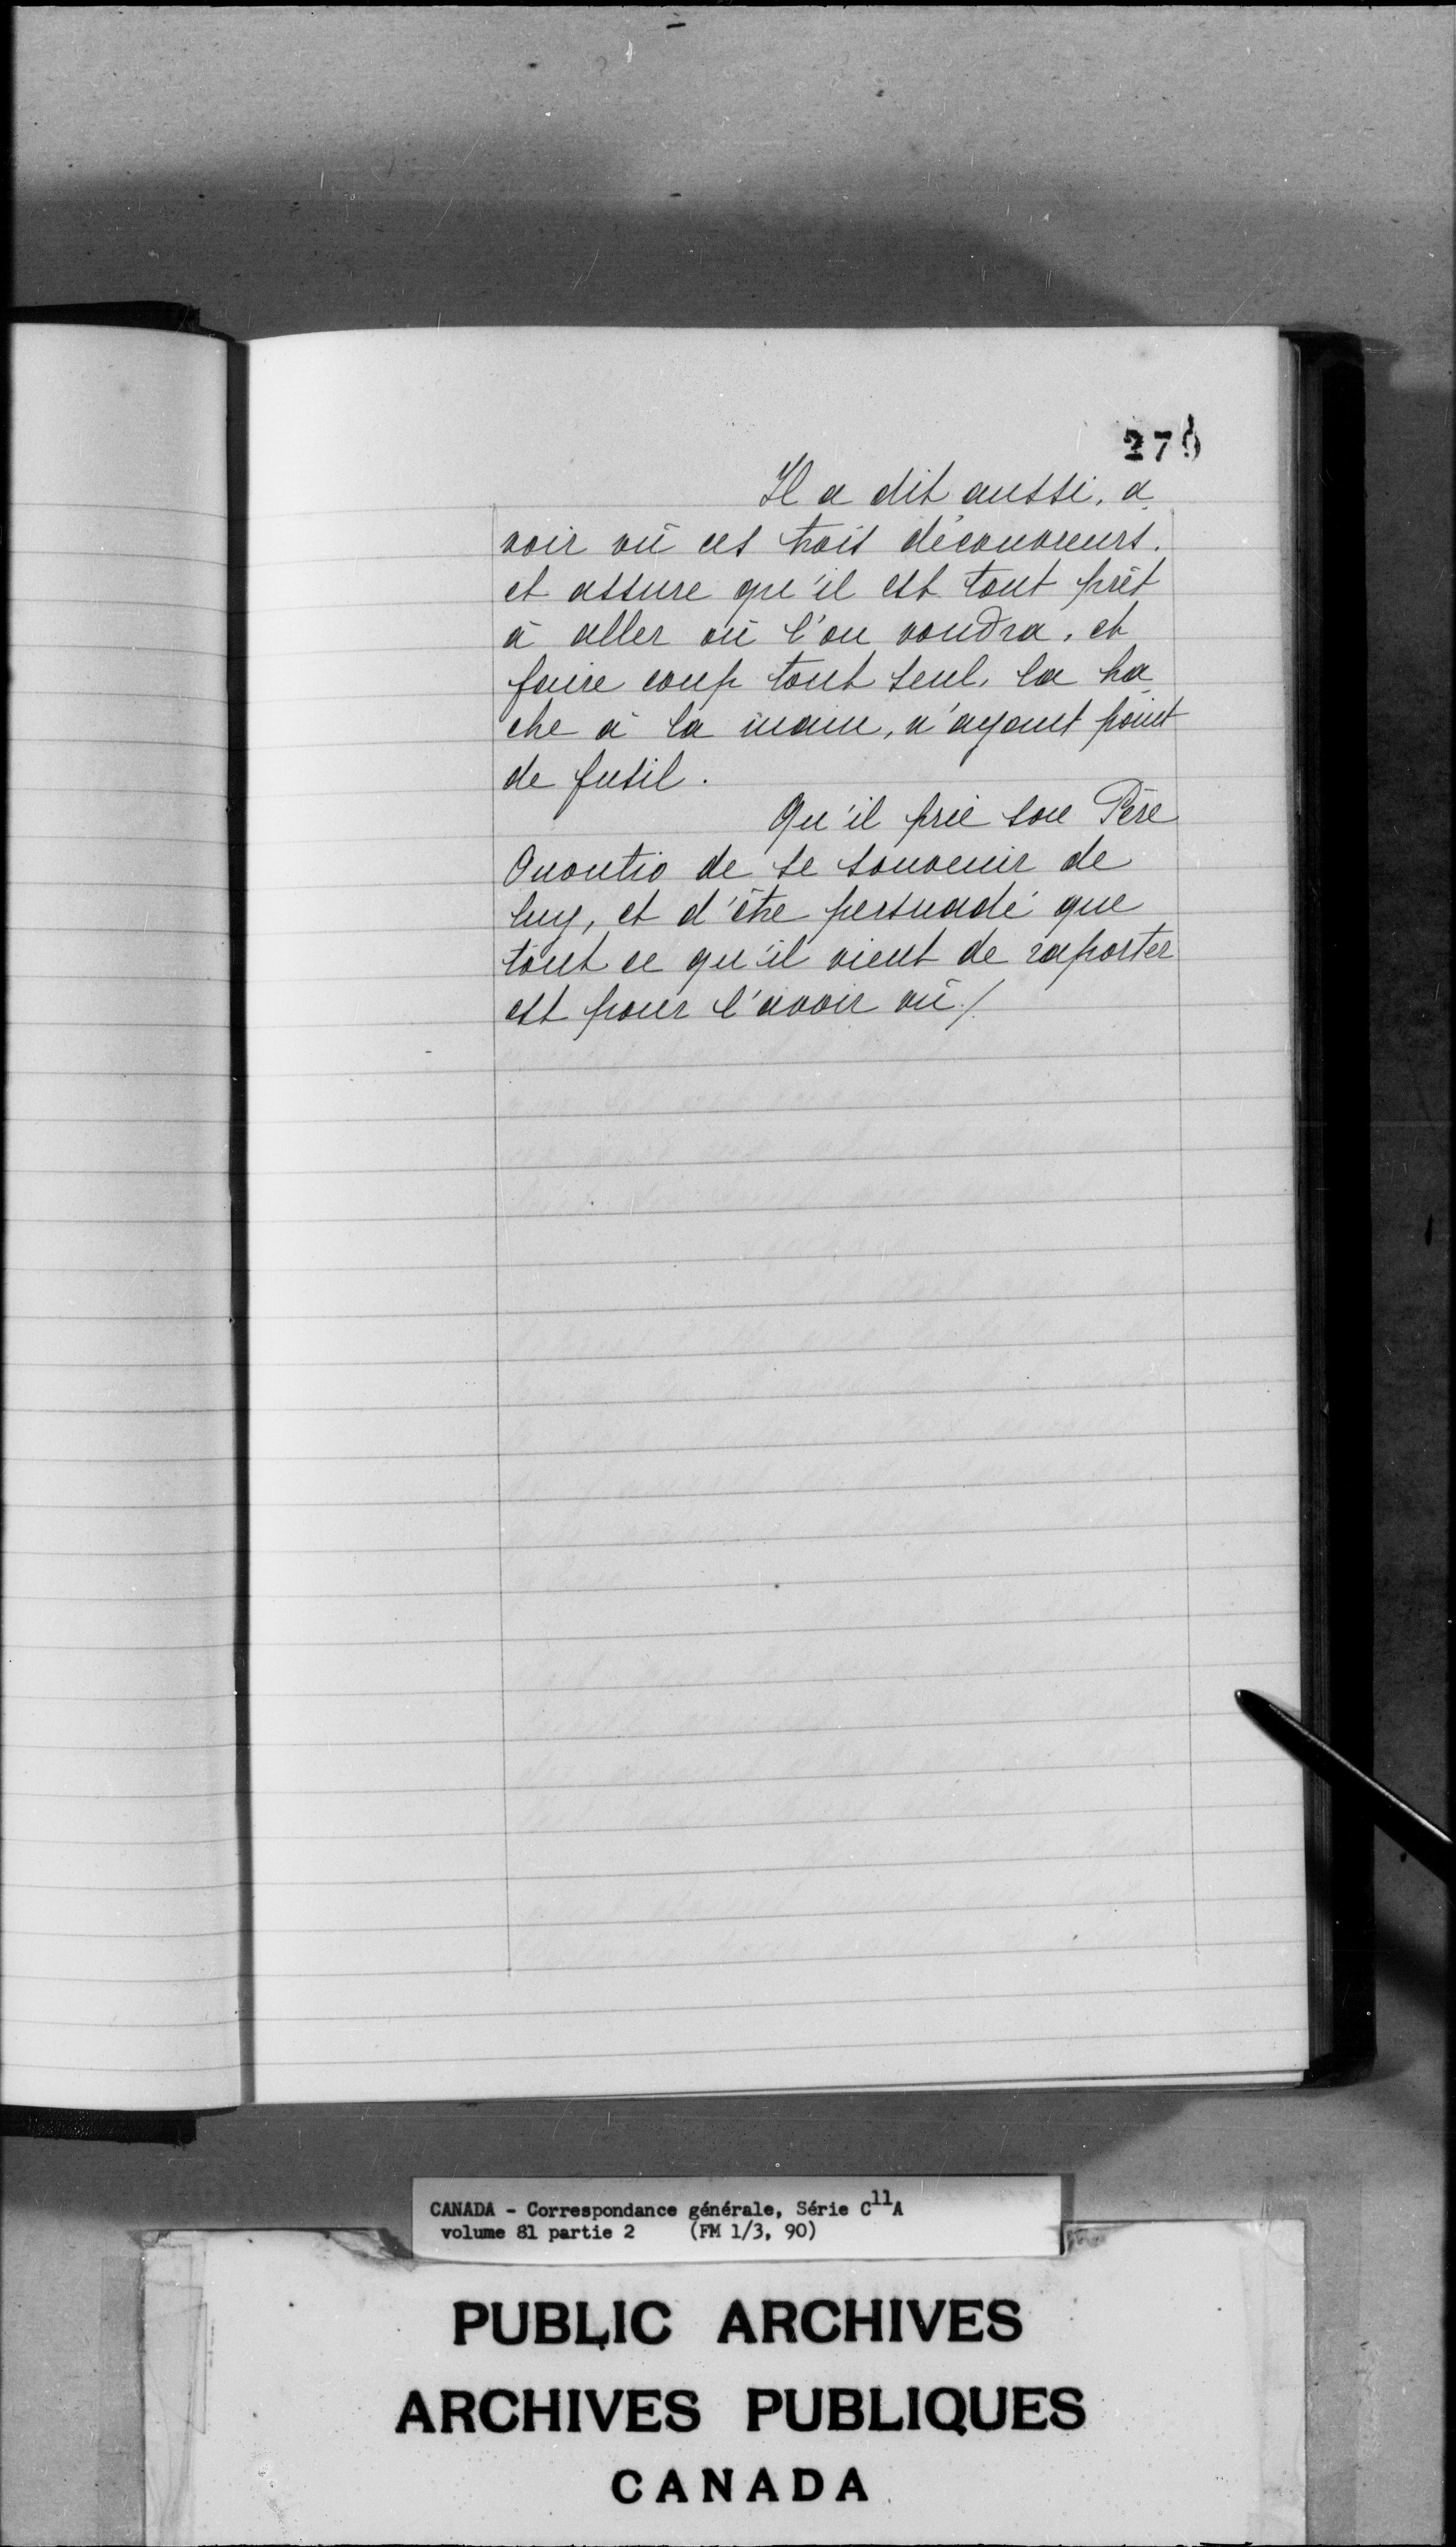 279
Il a dit aussi, a
voir vû ces trois découvreurs.
et assure qu'il est tout prêt
à aller où l'on voudra, et
faire coup tout seul, la ha
che à la main, n'ayant point
de fusil.
Qu'il prie son Père
Onontio de se souvenir de
luy, et d'être persuadé que
tout ce qu'il vient de raporter
est pour l'avoir vû./.
CANADA - Correspondance générale, Série C11A
volume 81 partie 2 (FM 1/3, 90)
PUBLIC ARCHIVES
ARCHIVES PUBLIQUES
CANADA